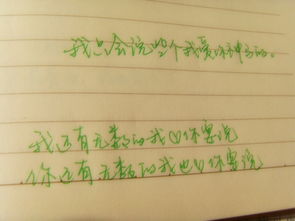 我只会说些个我爱你神马的。
我还有无数的我也你要说
你还有无数的我也以你要说